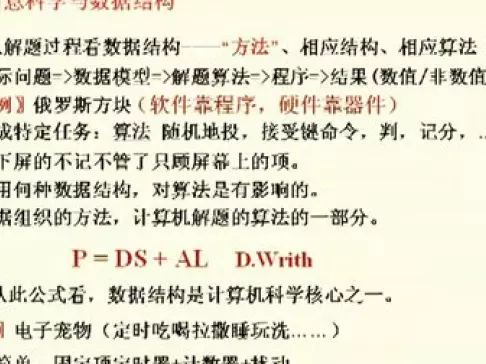 息科学与数据结构
人解题过程看数据结构——“方法”、相应结构、相应算法
际问题=>数据模型=>解题算法=>程序=>结果(数值/非数值
例》俄罗斯方块(软件靠程序，硬件靠器件)
成特定任务：算法 随机地投，接受键命令，判，记分，…
下屏的不记不管了只顾屏幕上的项。
用何种数据结构，对算法是有影响的。
据组织的方法，计算机解题的算法的一部分。
P = DS + AL D.Writh
从此公式看，数据结构是计算机科学核心之一。
电子宠物（定时吃喝拉撒睡玩洗……）
简单 固定项定时器+计数器+扰动